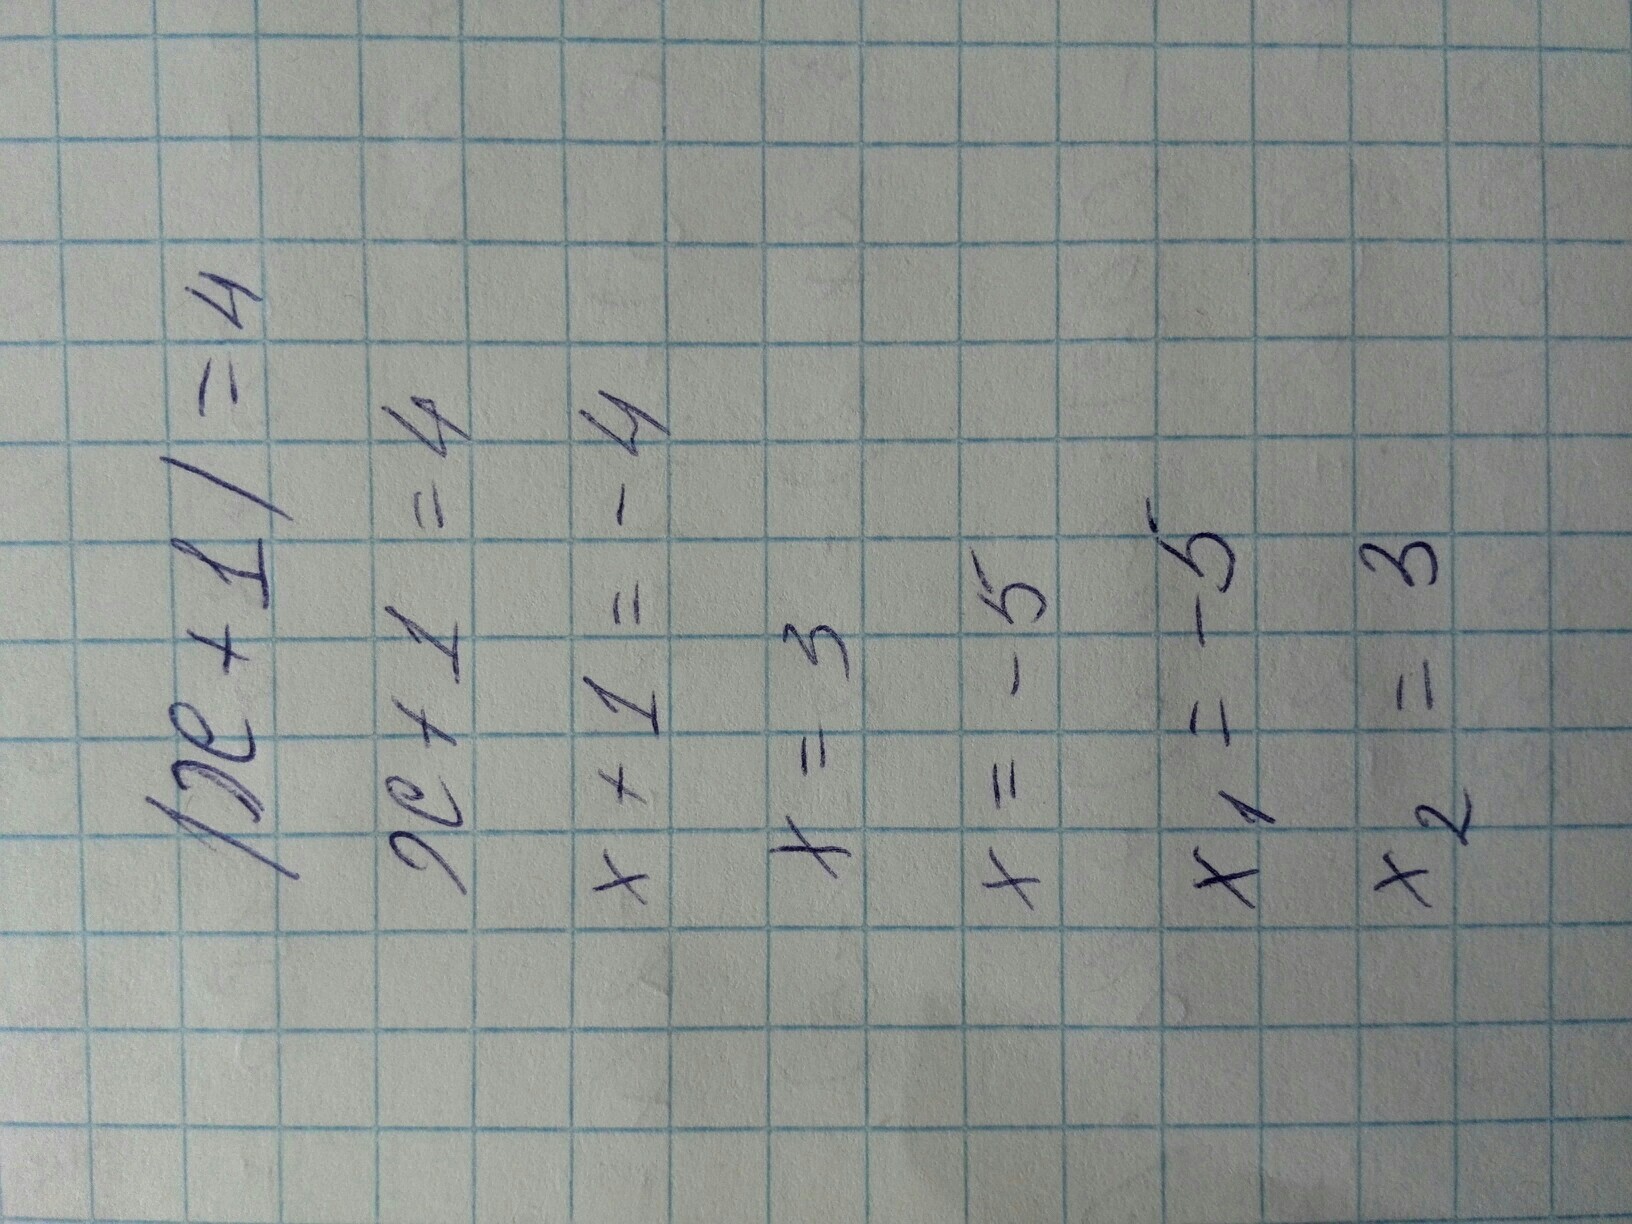 |x+1|=4
x+1=4
x+1=-4
x=3
x=-5
x₁=-5
x₂=3